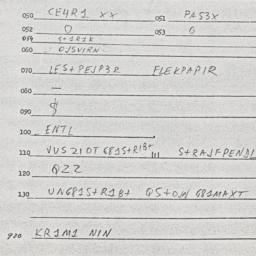 050 CE4R1 XX 051 PAS3X
052 O 053 O
054 S+1R1K
060 OJSVIRN
070 IFS+PEJP3R FLEKPAPIR
080 —
090 $
100 ENTL
110 VUS 210T 681S+R1B+ S+RAJFPENDI
120 QZZ
130 UN681S+R1B+ QS+OW 681MAXT
900 KR1M1 NIN